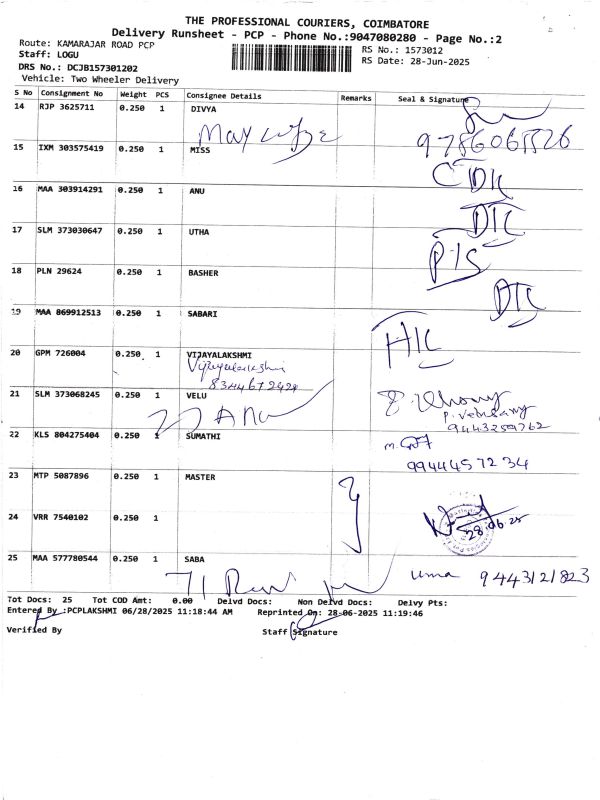 THE PROFESSIONAL COURIERS, COIMBATORE
Delivery Runsheet - PCP - Phone No.:9047080280 - Page No.:2
Route: KAMARAJAR ROAD PCP
RS No.: 1573012
Staff: LOGU
RS Date: 28-Jun-2025
DRS No.: DCJB157301202
Vehicle: Two Wheeler Delivery
S No Consignment No Weight PCS Consignee Details Remarks Seal & Signature
14 RJP 3625711 0.250 1 DIVYA
15 IXM 303575419 0.250 1 MISS
16 MAA 303914291 0.250 1 ANU
17 SLM 373030647 0.250 1 UTHA
18 PLN 29624 0.250 1 BASHER
19 MAA 869912513 0.250 1 SABARI
20 GPM 726004 0.250 1 VIJAYALAKSHMI
Vijayalakshmi
21 SLM 373068245 0.250 1 VELU
9443259762
22 KLS 804275404 0.250 1 SUMATHI
9944457234
23 MTP 5087896 0.250 1 MASTER
24 VRR 7540102 0.250 1
28.06.25
25 MAA 577780544 0.250 1 SABA
uma 9443121823
Tot Docs: 25 Tot COD Amt: 0.00 Delvd Docs: Non Delvd Docs: Delvy Pts:
Entered By :PCPLAKSHMI 06/28/2025 11:18:44 AM Reprinted On: 28-06-2025 11:19:46
Verified By Staff Signature